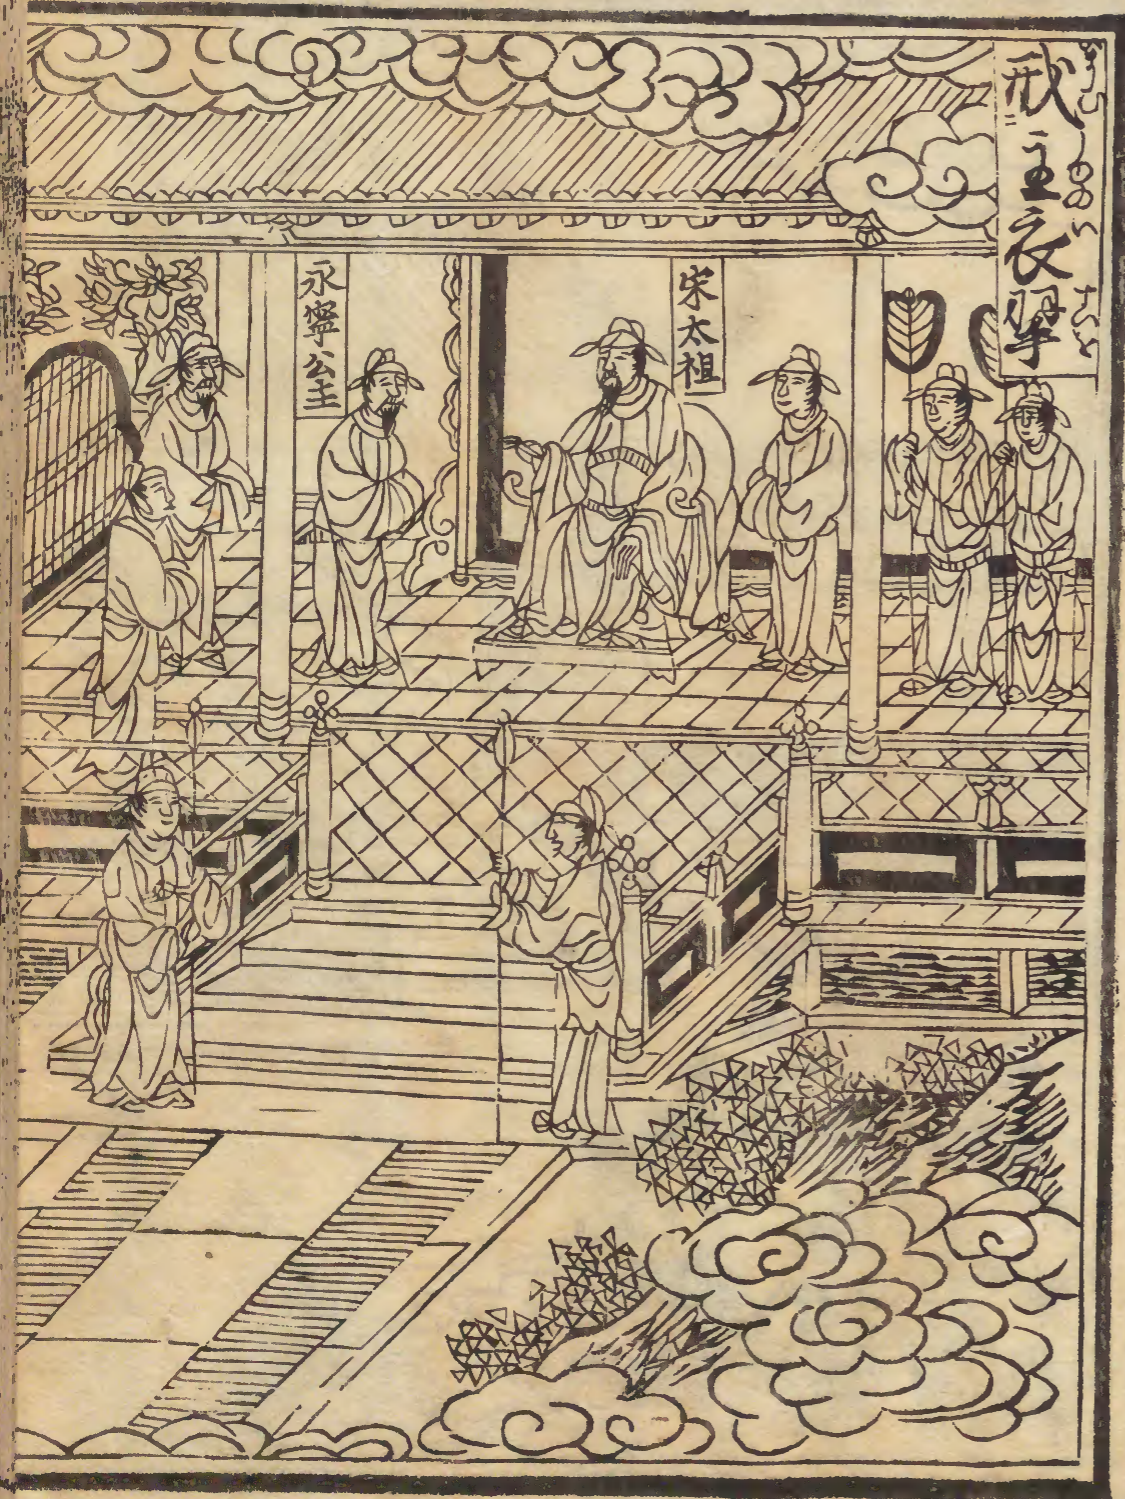 戒主衣翠
宋太祖
永寧公主